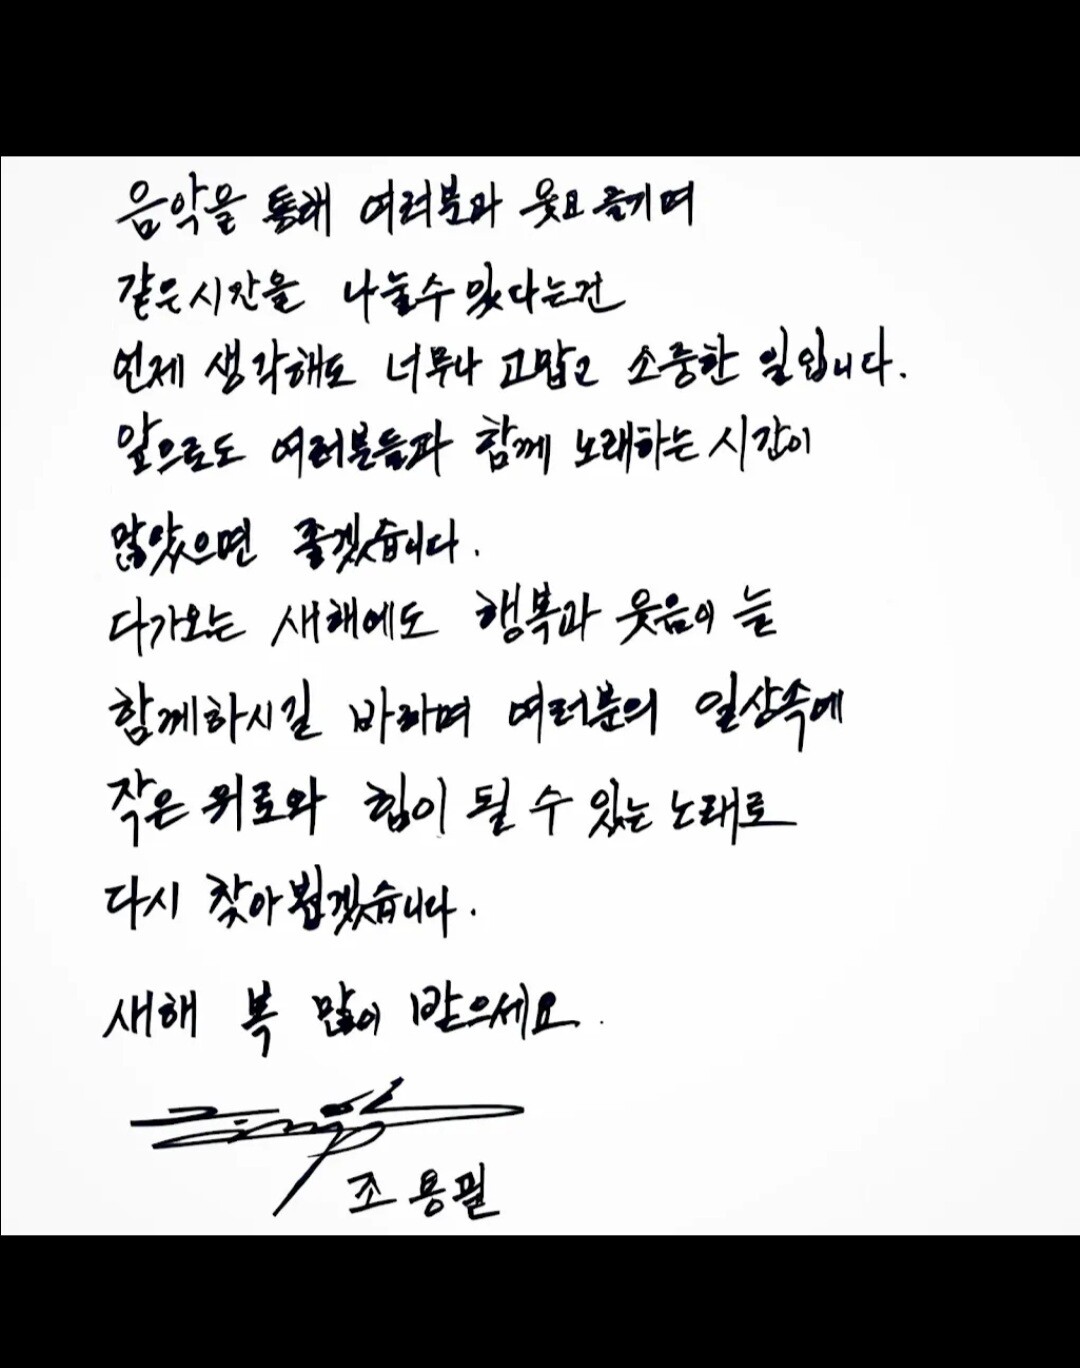 음악을 통해 여러분과 웃고 즐기며
같은시간을 나눌수 있다는건
언제 생각해도 너무나 고맙고 소중한 일입니다.
앞으로도 여러분들과 함께 노래하는 시간이
많았으면 좋겠습니다.
다가오는 새해에도 행복과 웃음이 늘
함께하시길 바라며 여러분의 일상속에
작은 위로와 힘이 될 수 있는 노래로
다시 찾아뵙겠습니다.
새해 복 많이 받으세요.
조용필